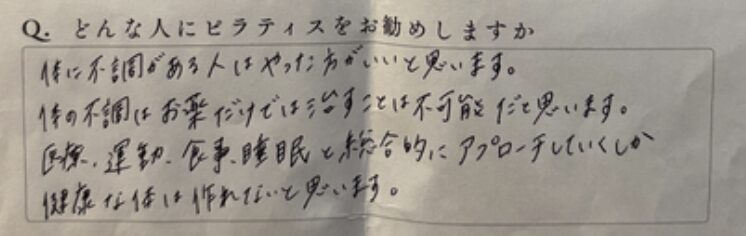 Q. どんな人にピラティスをお勧めしますか
体に不調がある人はやった方がいいと思います。
体の不調はお薬だけでは治すことは不可能だと思います。
医療、運動、食事、睡眠と総合的にアプローチしていくしか
健康な体は作れないと思います。